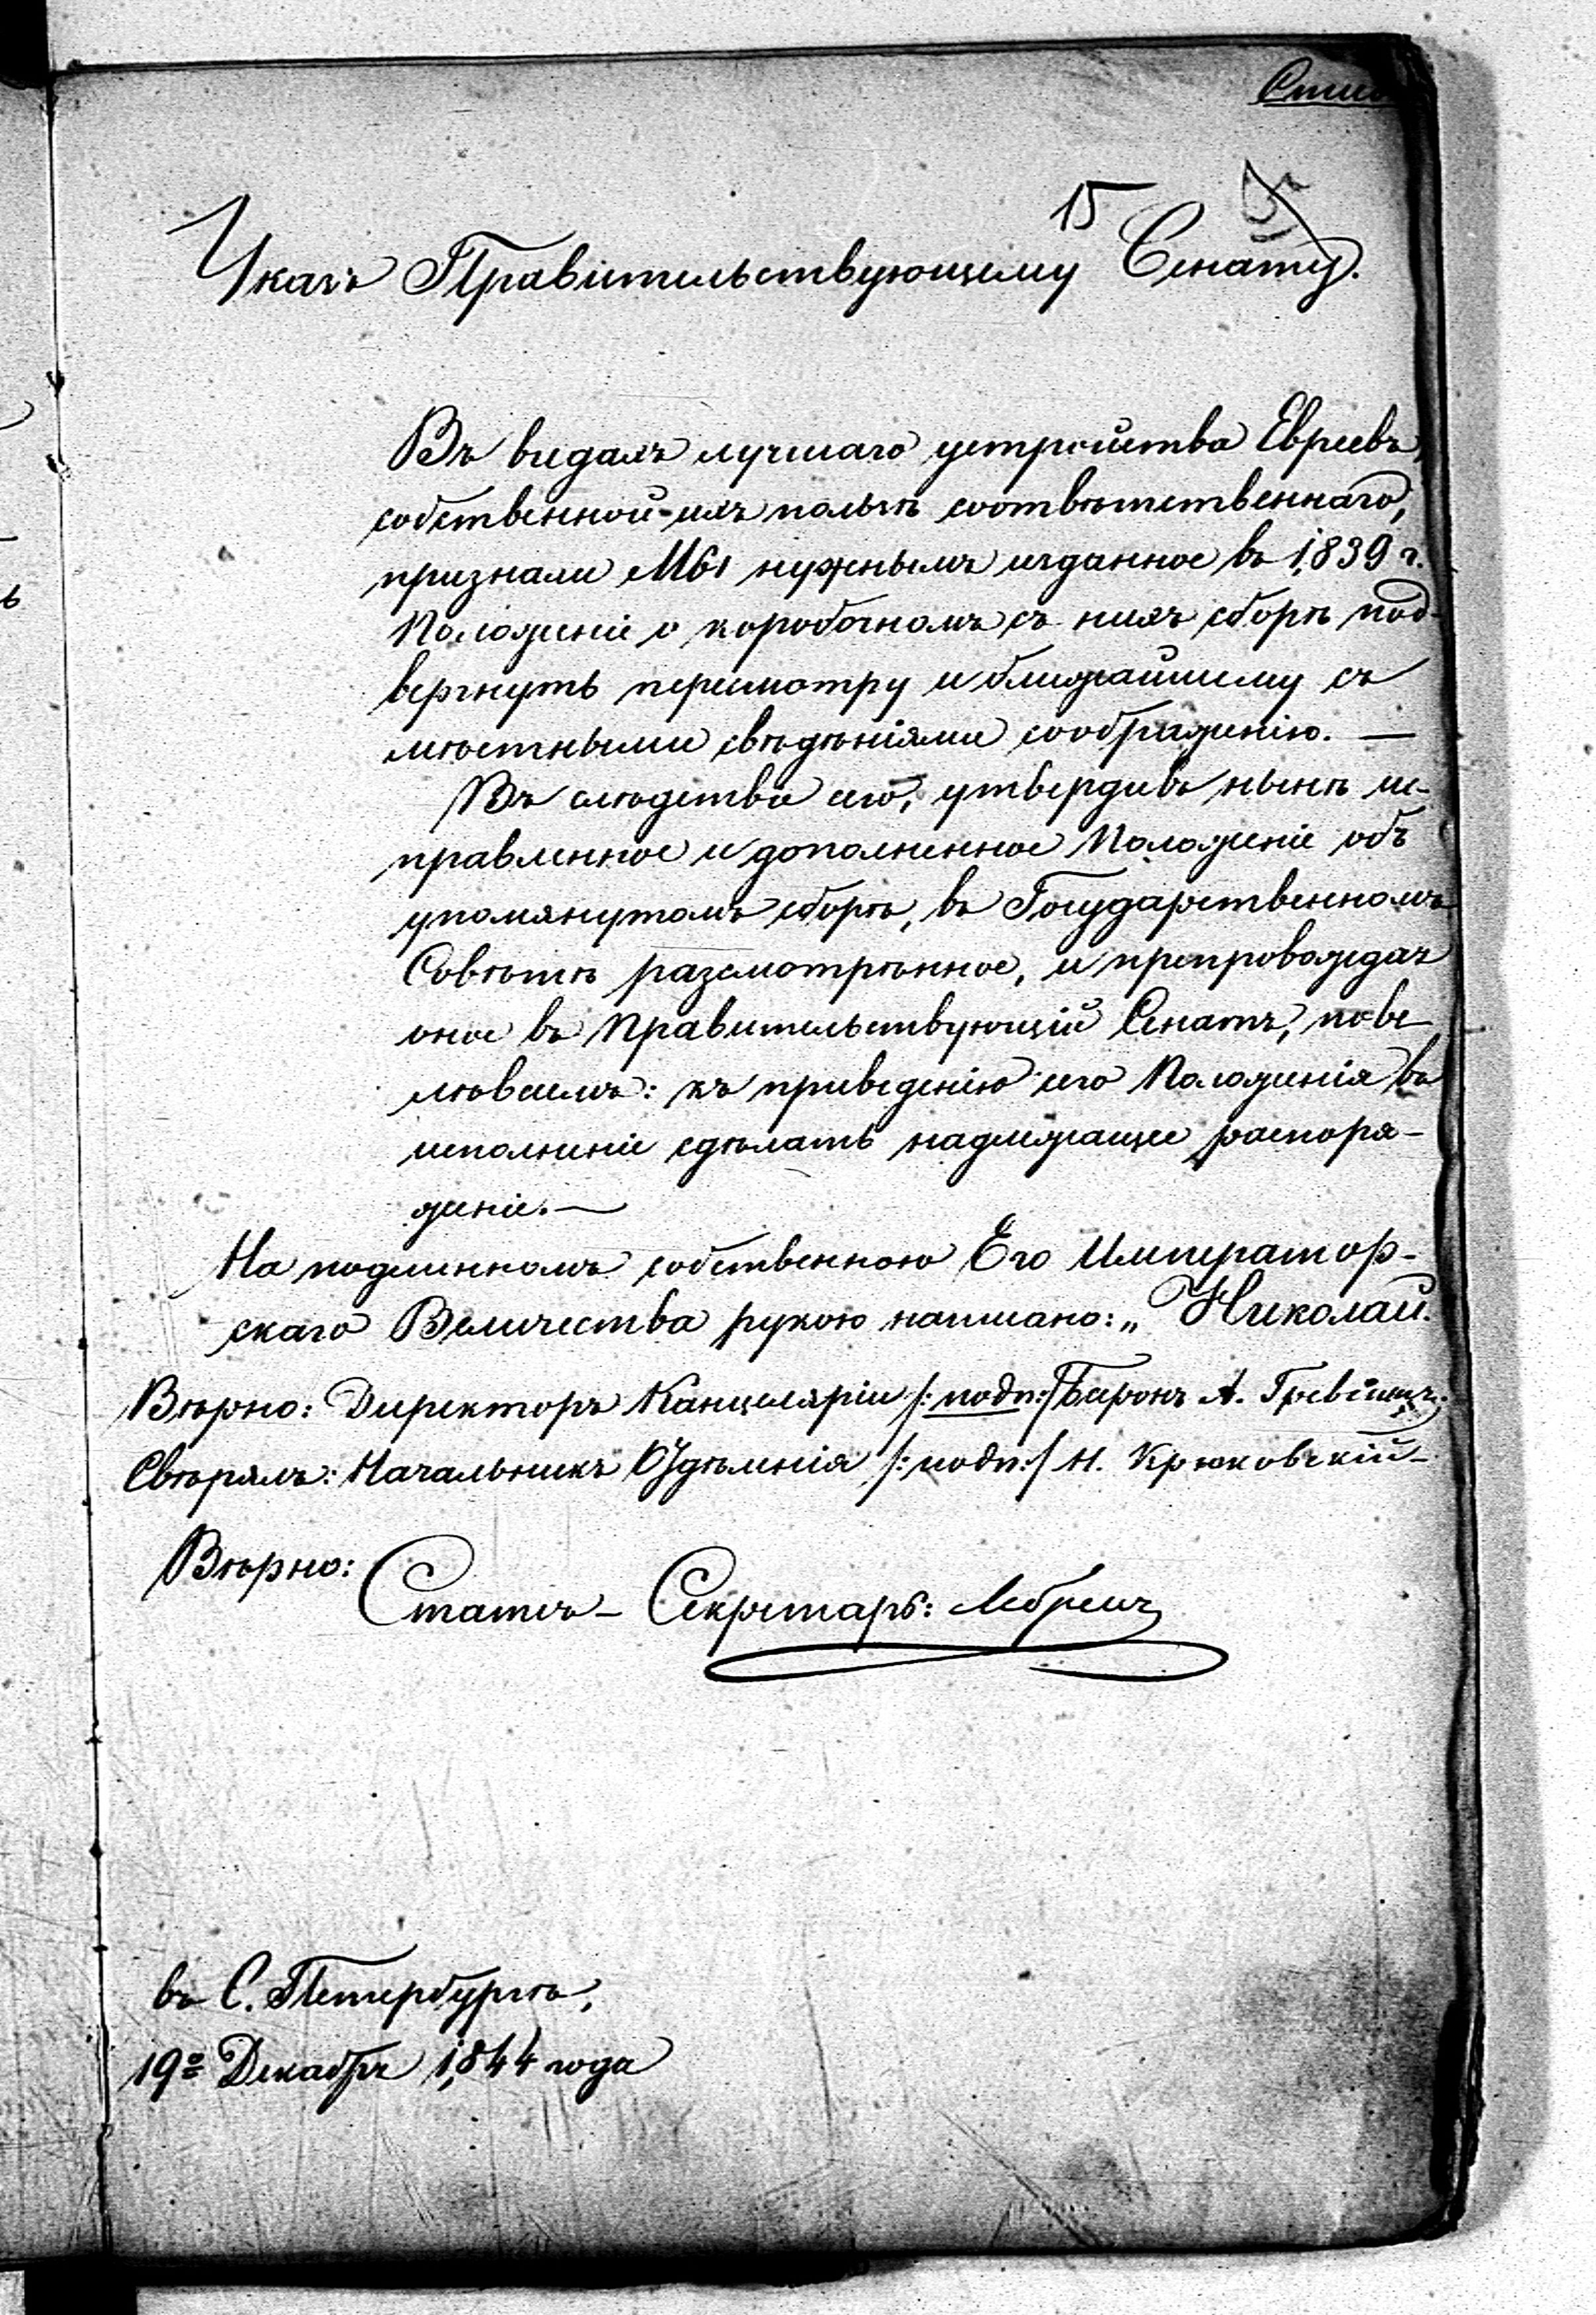 15
Указъ Правительствующему Сенату.
Въ видахъ лучшаго устройства Евреевъ,
собственной ихъ пользѣ соотвѣтственнаго,
признали Мы нужнымъ изданное въ 1839 г.
Положеніе о коробочномъ съ нихъ сборѣ под-
вергнуть пересмотру и ближайшему съ
мѣстными свѣдѣніями соображенію. —
Въ слѣдствіе сего, утвердивъ нынѣ ис-
правленное и дополненное Положеніе объ
упомянутомъ сборѣ, въ Государственномъ
Совѣтѣ разсмотрѣнное, и препровождая
оное въ Правительствующій Сенатъ, пове-
лѣваемъ: къ приведенію сего Положенія въ
исполненіе сдѣлать надлежащее распоря-
женіе. —
На подлинномъ собственною Его Император-
скаго Величества рукою написано: „Николай.
Вѣрно: Директоръ Канцеляріи /: подп: / Баронъ А.
Свѣрялъ: Начальникъ Отдѣленія /: подп: / Н. Крюковскій —
Вѣрно: Статсъ - Секретарь:
въ С. Петербургѣ,
19º Декабря 1844 года